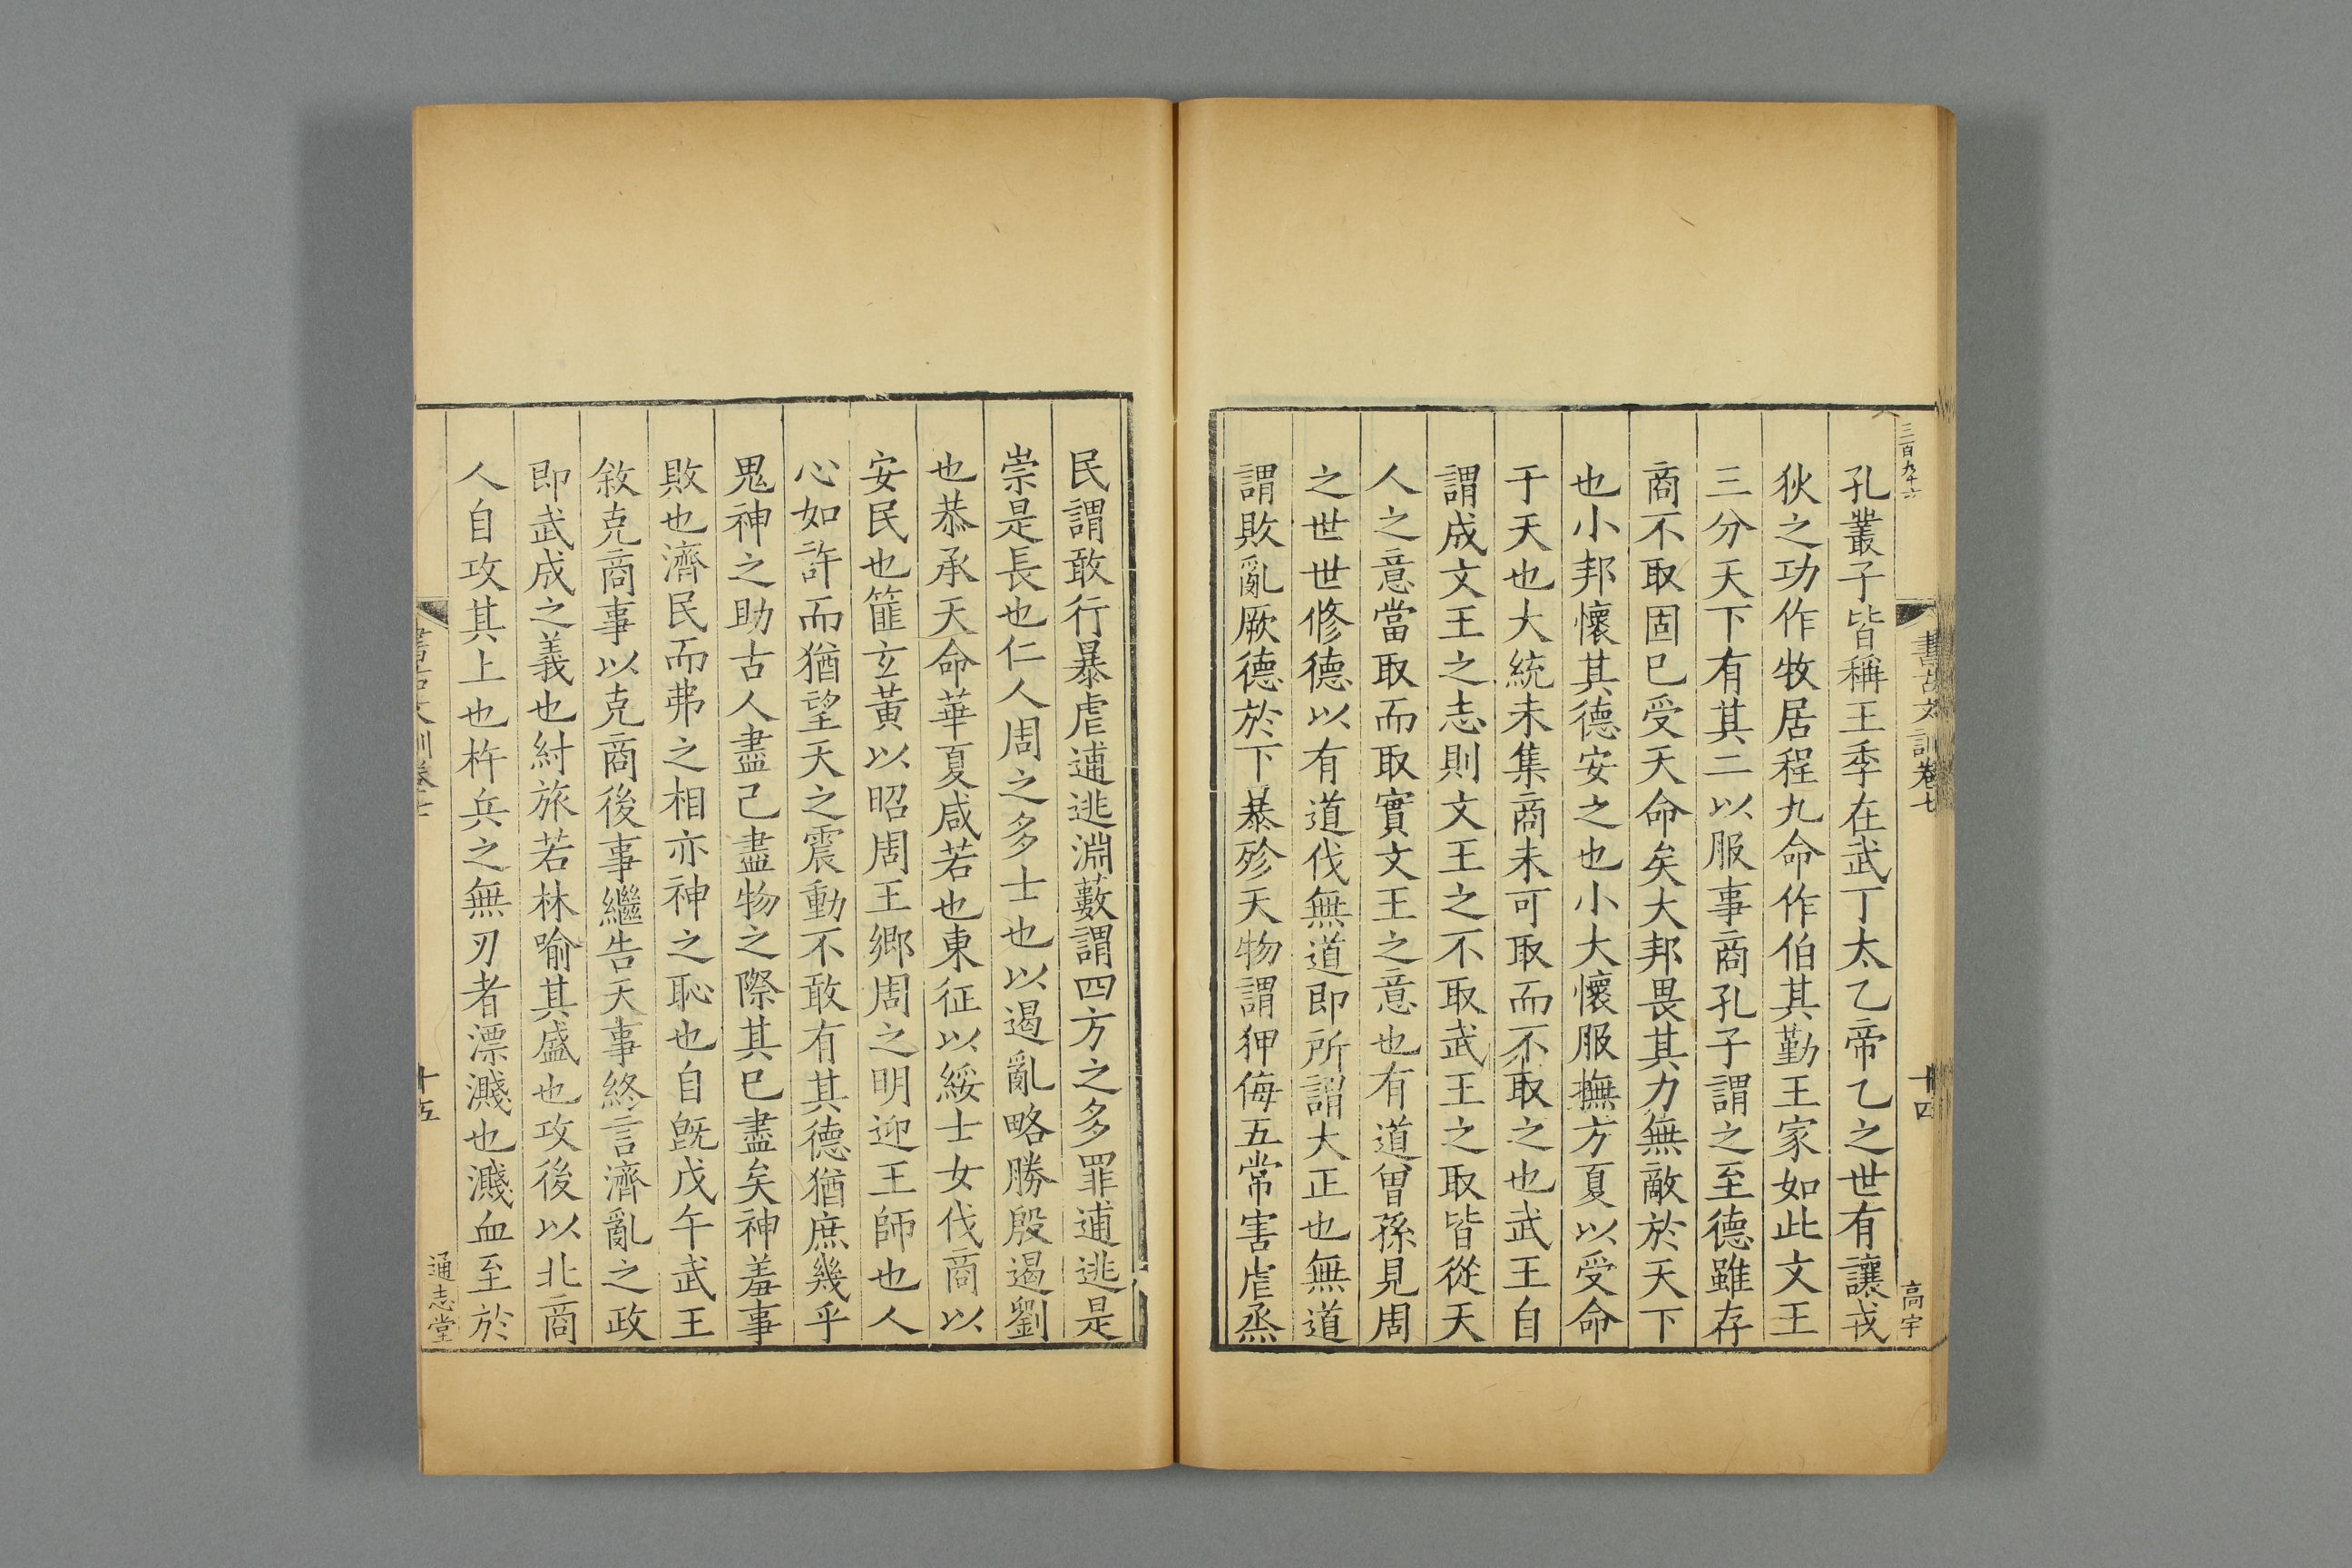 三百九十六
書古文訓卷七
十四
高宇
孔叢子皆稱王季在武丁太乙帝乙之世有讓戎
狄之功作牧居程九命作伯其勤王家如此文王
三分天下有其二以服事商孔子謂之至德雖存
商不取固已受天命矣大邦畏其力無敵於天下
也小邦懷其德安之也小大懷服撫方夏以受命
于天也大統未集商未可取而不取之也武王自
謂成文王之志則文王之不取武王之取皆從天
人之意當取而取實文王之意也有道曾孫見周
之世世修德以有道伐無道即所謂大正也無道
謂敗亂厥德於下暴殄天物謂狎侮五常害虐烝
民謂敢行暴虐逋逃淵藪謂四方之多罪逋逃是
崇是長也仁人周之多士也以遏亂略勝殷遏劉
也恭承天命華夏咸若也東征以綏士女伐商以
安民也篚玄黃以昭周王鄉周之明迎王師也人
心如許而猶望天之震動不敢有其德猶庶幾乎
鬼神之助古人盡己盡物之際其已盡矣神羞事
敗也濟民而弗之相亦神之恥也自旣戊午武王
敘克商事以克商後事繼告天事終言濟亂之政
即武成之義也紂旅若林喻其盛也攻後以北商
人自攻其上也杵兵之無刃者漂濺也濺血至於
書古文訓卷七
十五
通志堂